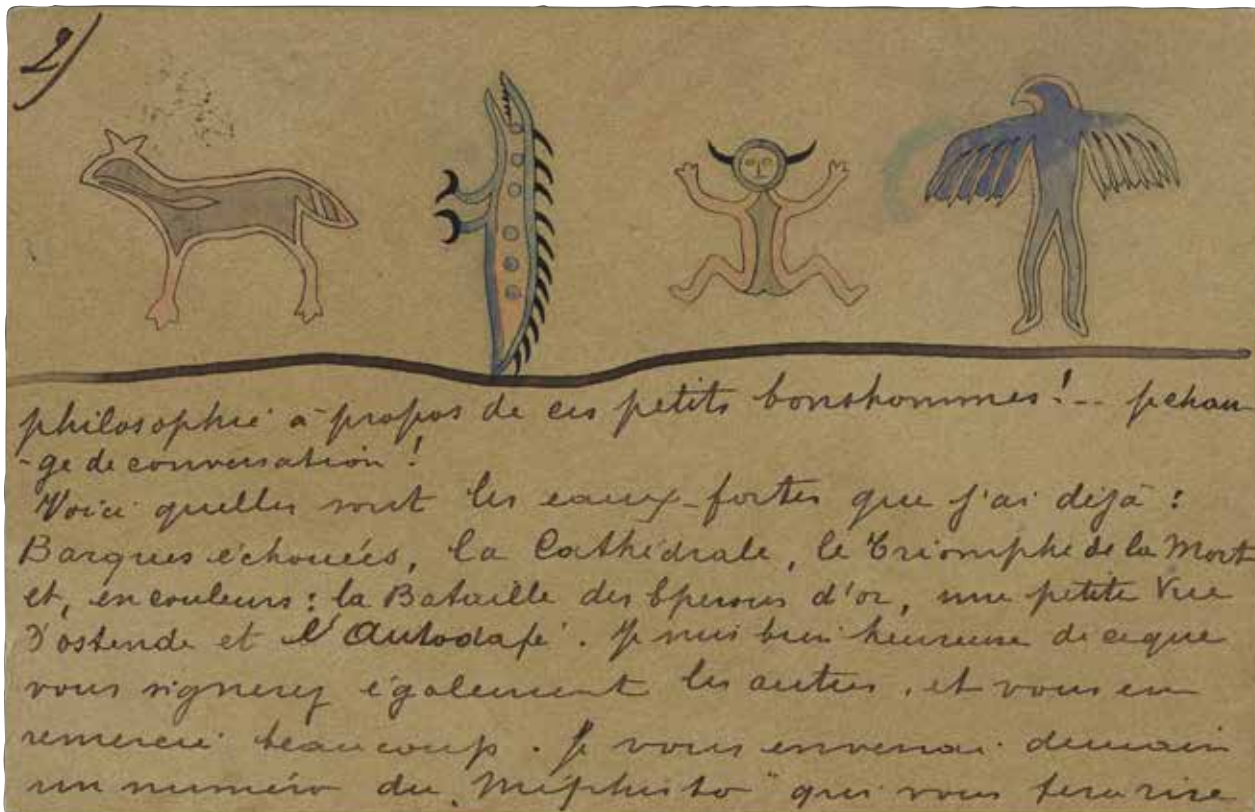 2)
philosophie à propos de ces petits bonshommes!-- je chan-
-ge de conversation!
Voici quelles sont les eaux-fortes que j'ai déjà:
Barques échouées, la Cathédrale, le Triomphe de la Mort
et, en couleurs: la Bataille des Eperons d'or, une petite Vue
d'ostende et l'Autodafé. Je suis bien heureuse de ce que
vous signerez également les autres, et vous en
remercie beaucoup. Je vous enverrai demain
un numéro du "Méphisto" qui vous fera rire